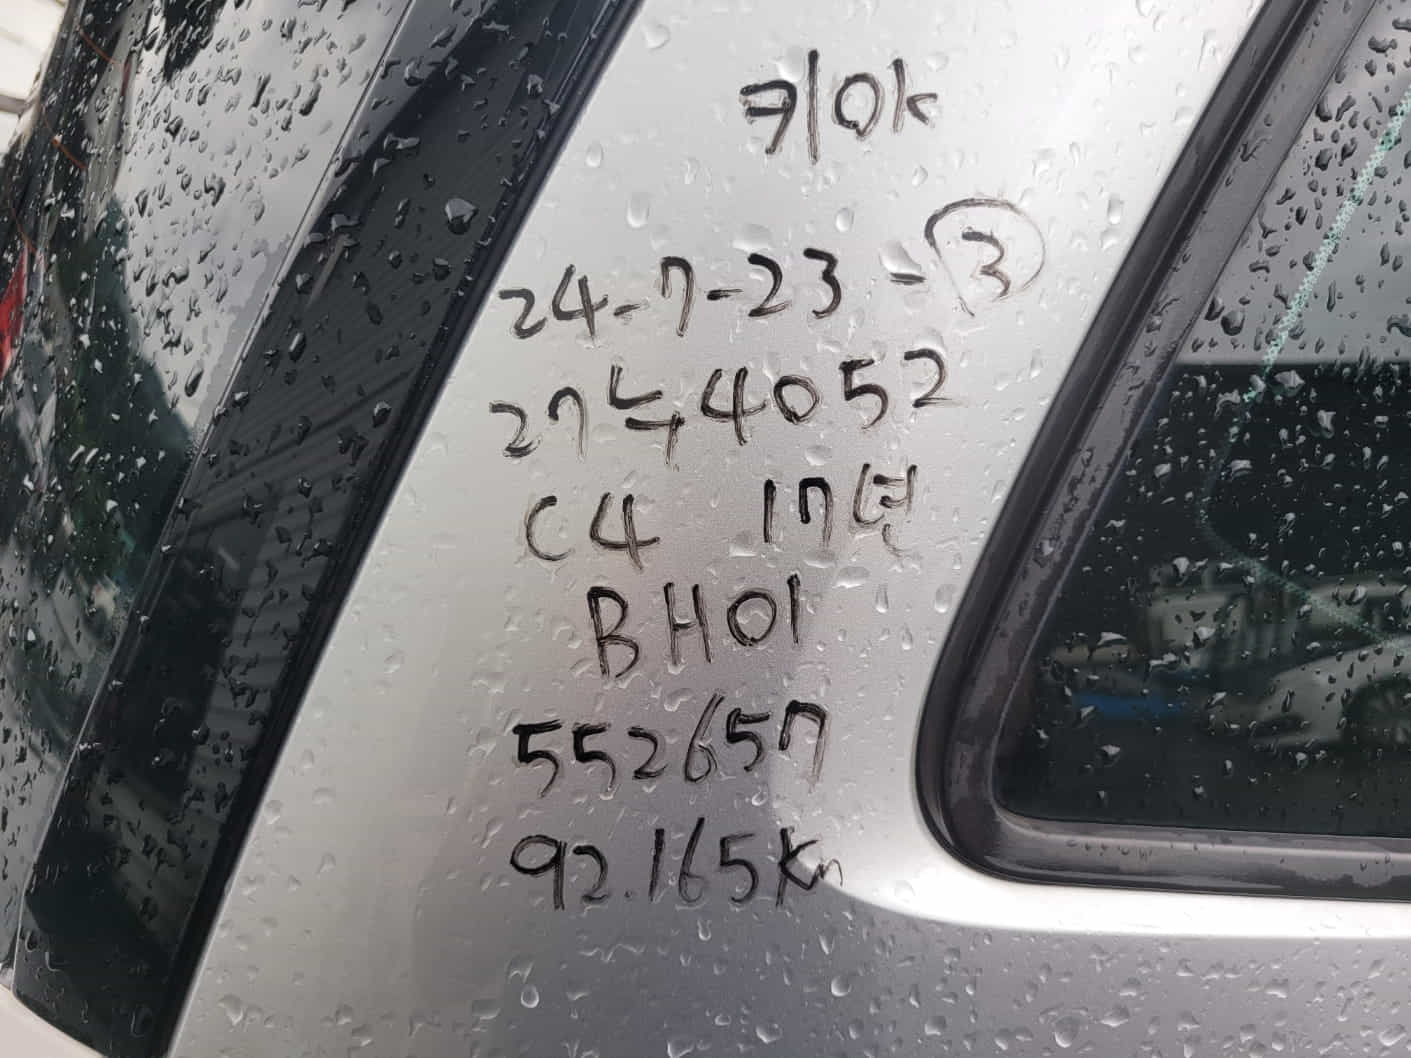 키아
24-7-23-③
27누4052
C4 17년
BH01
552657
92.165km